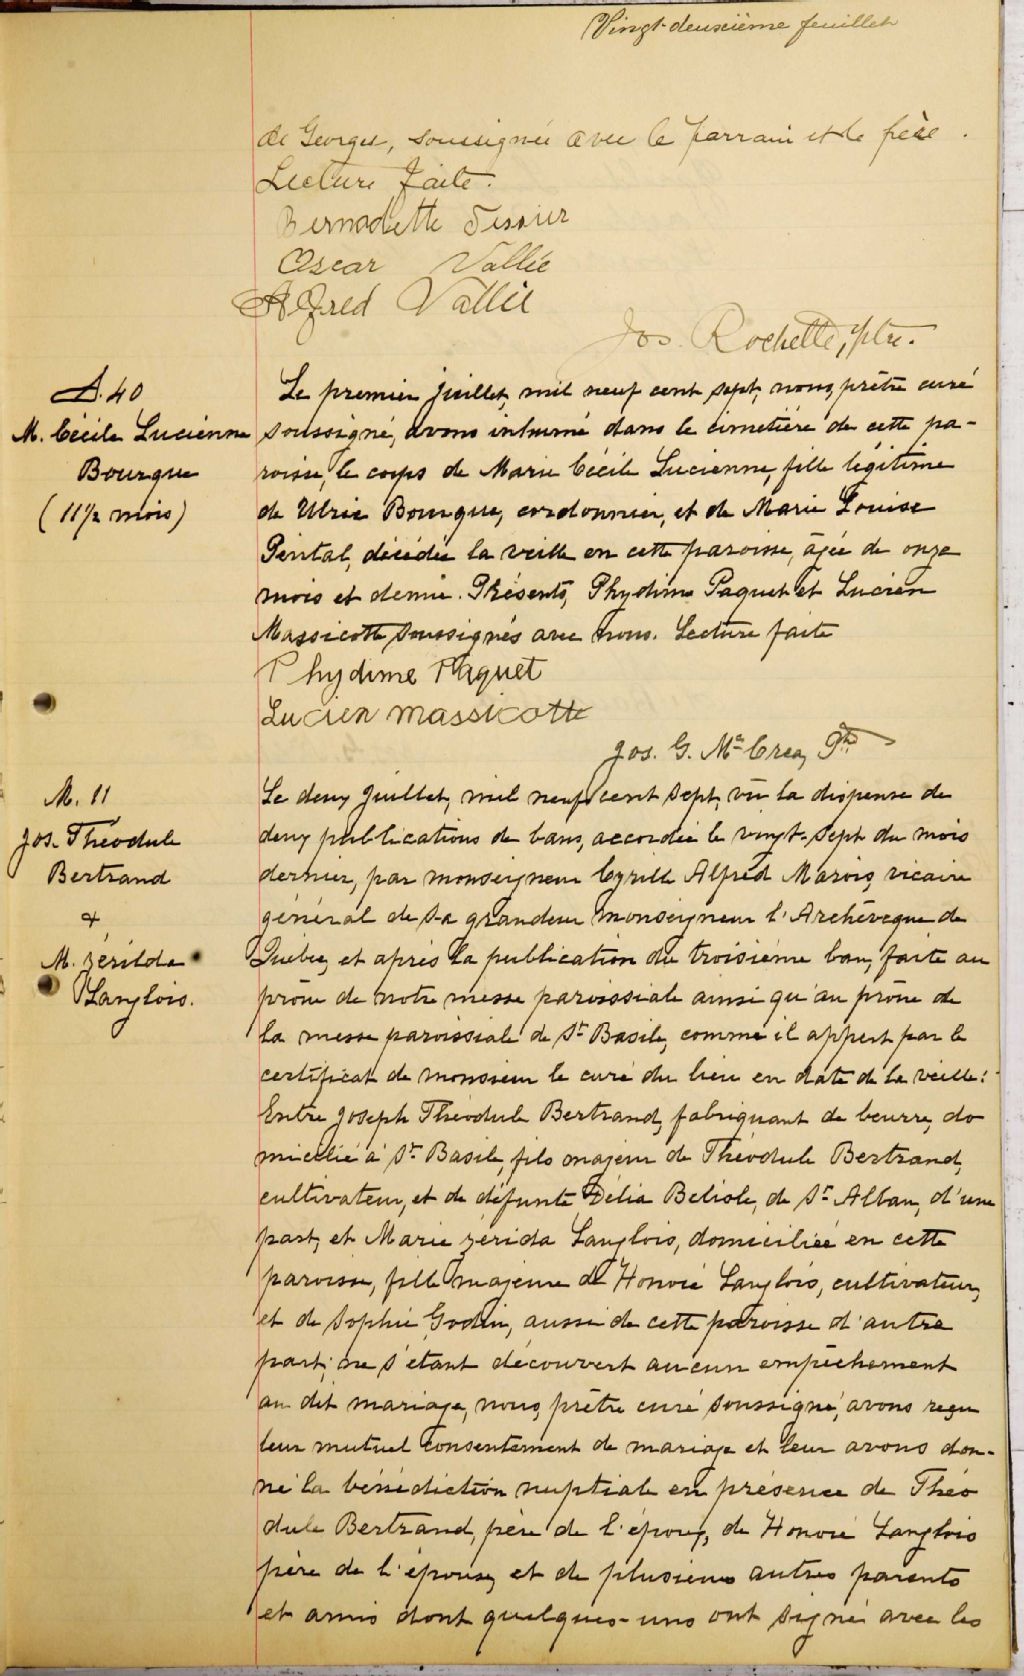 Vingt-deuxième feuillet
de Georges, soussignée avec le parrain et le père.
Lecture faite.
Bernadette Tessier
Oscar Vallée
Alfred Vallée
Jos. Rochette, ptre.
S. 40
M. Cécile Lucienne
Bourque
(11 1/2 mois)
Le premier juillet, mil neuf cent sept, nous, prêtre curé
soussigné, avons inhumé dans le cimetière de cette pa-
roisse, le corps de Marie Cécile Lucienne, fille légitime
de Ulric Bourque, cordonnier, et de Marie Louise
Pental, décédée la veille en cette paroisse, âgée de onze
mois et demie. Présents, Phydime Paquet et Lucien
Massicotte soussignés avec nous. Lecture faite
Phydime Paquet
Lucien Massicotte
Jos. G. McCrea, Ptre
M. 11
Jos. Théodule
Bertrand
&
M. Zérilda
Langlois.
Le deux juillet, mil neuf cent sept, vû la dispense de
deux publications de bans, accordée le vingt-sept du mois
dernier, par monseigneur Cyrille Alfred Marois, vicaire
général de sa grandeur monseigneur l'Archevêque de
Québec, et après la publication du troisième ban, faite au
prône de notre messe paroissiale ainsi qu'au prône de
la messe paroissiale de St Basile, comme il appert par le
certificat de monsieur le curé du lieu en date de la veille:
Entre Joseph Théodule Bertrand, fabriquant de beurre, do
micilié à St Basile, fils majeur de Théodule Bertrand,
cultivateur, et de défunte Délia Belisle, de St Alban, d'une
part, et Marie Zérida Langlois, domiciliée en cette
paroisse, fille majeure de Honoré Langlois, cultivateur,
et de Sophie Godin, aussi de cette paroisse d'autre
part; ne s'étant découvert aucun empêchement
au dit mariage, nous, prêtre curé soussigné, avons reçu
leur mutuel consentement de mariage et leur avons don-
né la bénédiction nuptiale en présence de Théo
dule Bertrand, père de l'époux, de Honoré Langlois
père de l'épouse, et de plusieurs autres parents
et amis dont quelques-uns ont signé avec les